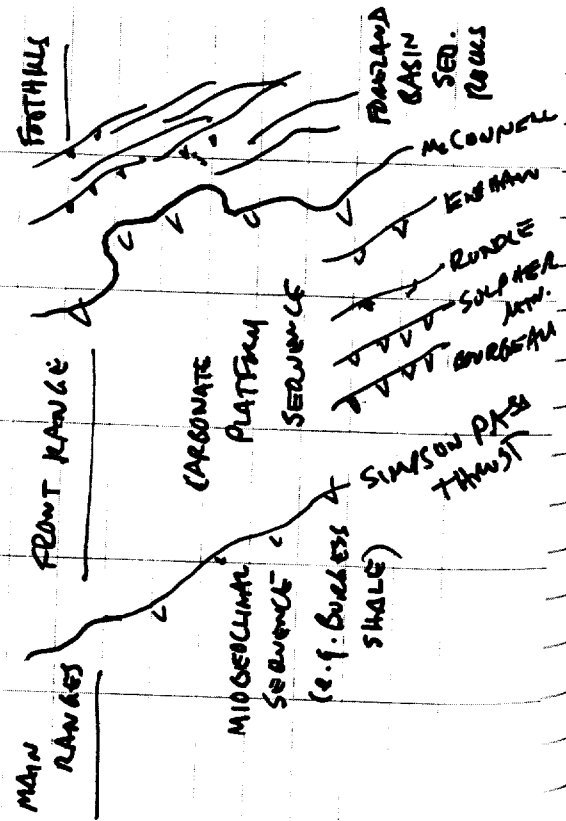 MAIN
RANGES
FRONT RANGE
FOOTHILLS
MIOGEOCLINAL
SEQUENCE
(e.g. BURGESS
SHALE)
CARBONATE
PLATFORM
SEQUENCE
FORELAND
BASIN
SED.
ROCKS
SIMPSON PASS
THRUST
BOURGEAU
SULPHER
MTN.
RUNDLE
McCONNELL